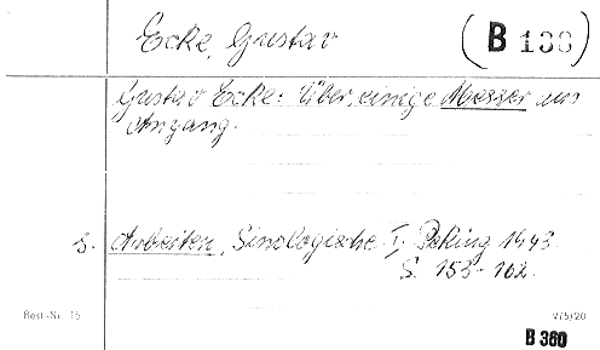 Ecke, Gustav
(B 133)
Gustav Ecke: Über einige Messer aus
Anyang.
s. Arbeiten, Sinologische I, Peking 1943
S. 153-162.
Best.-Nr. 15
V/5/20
B 360